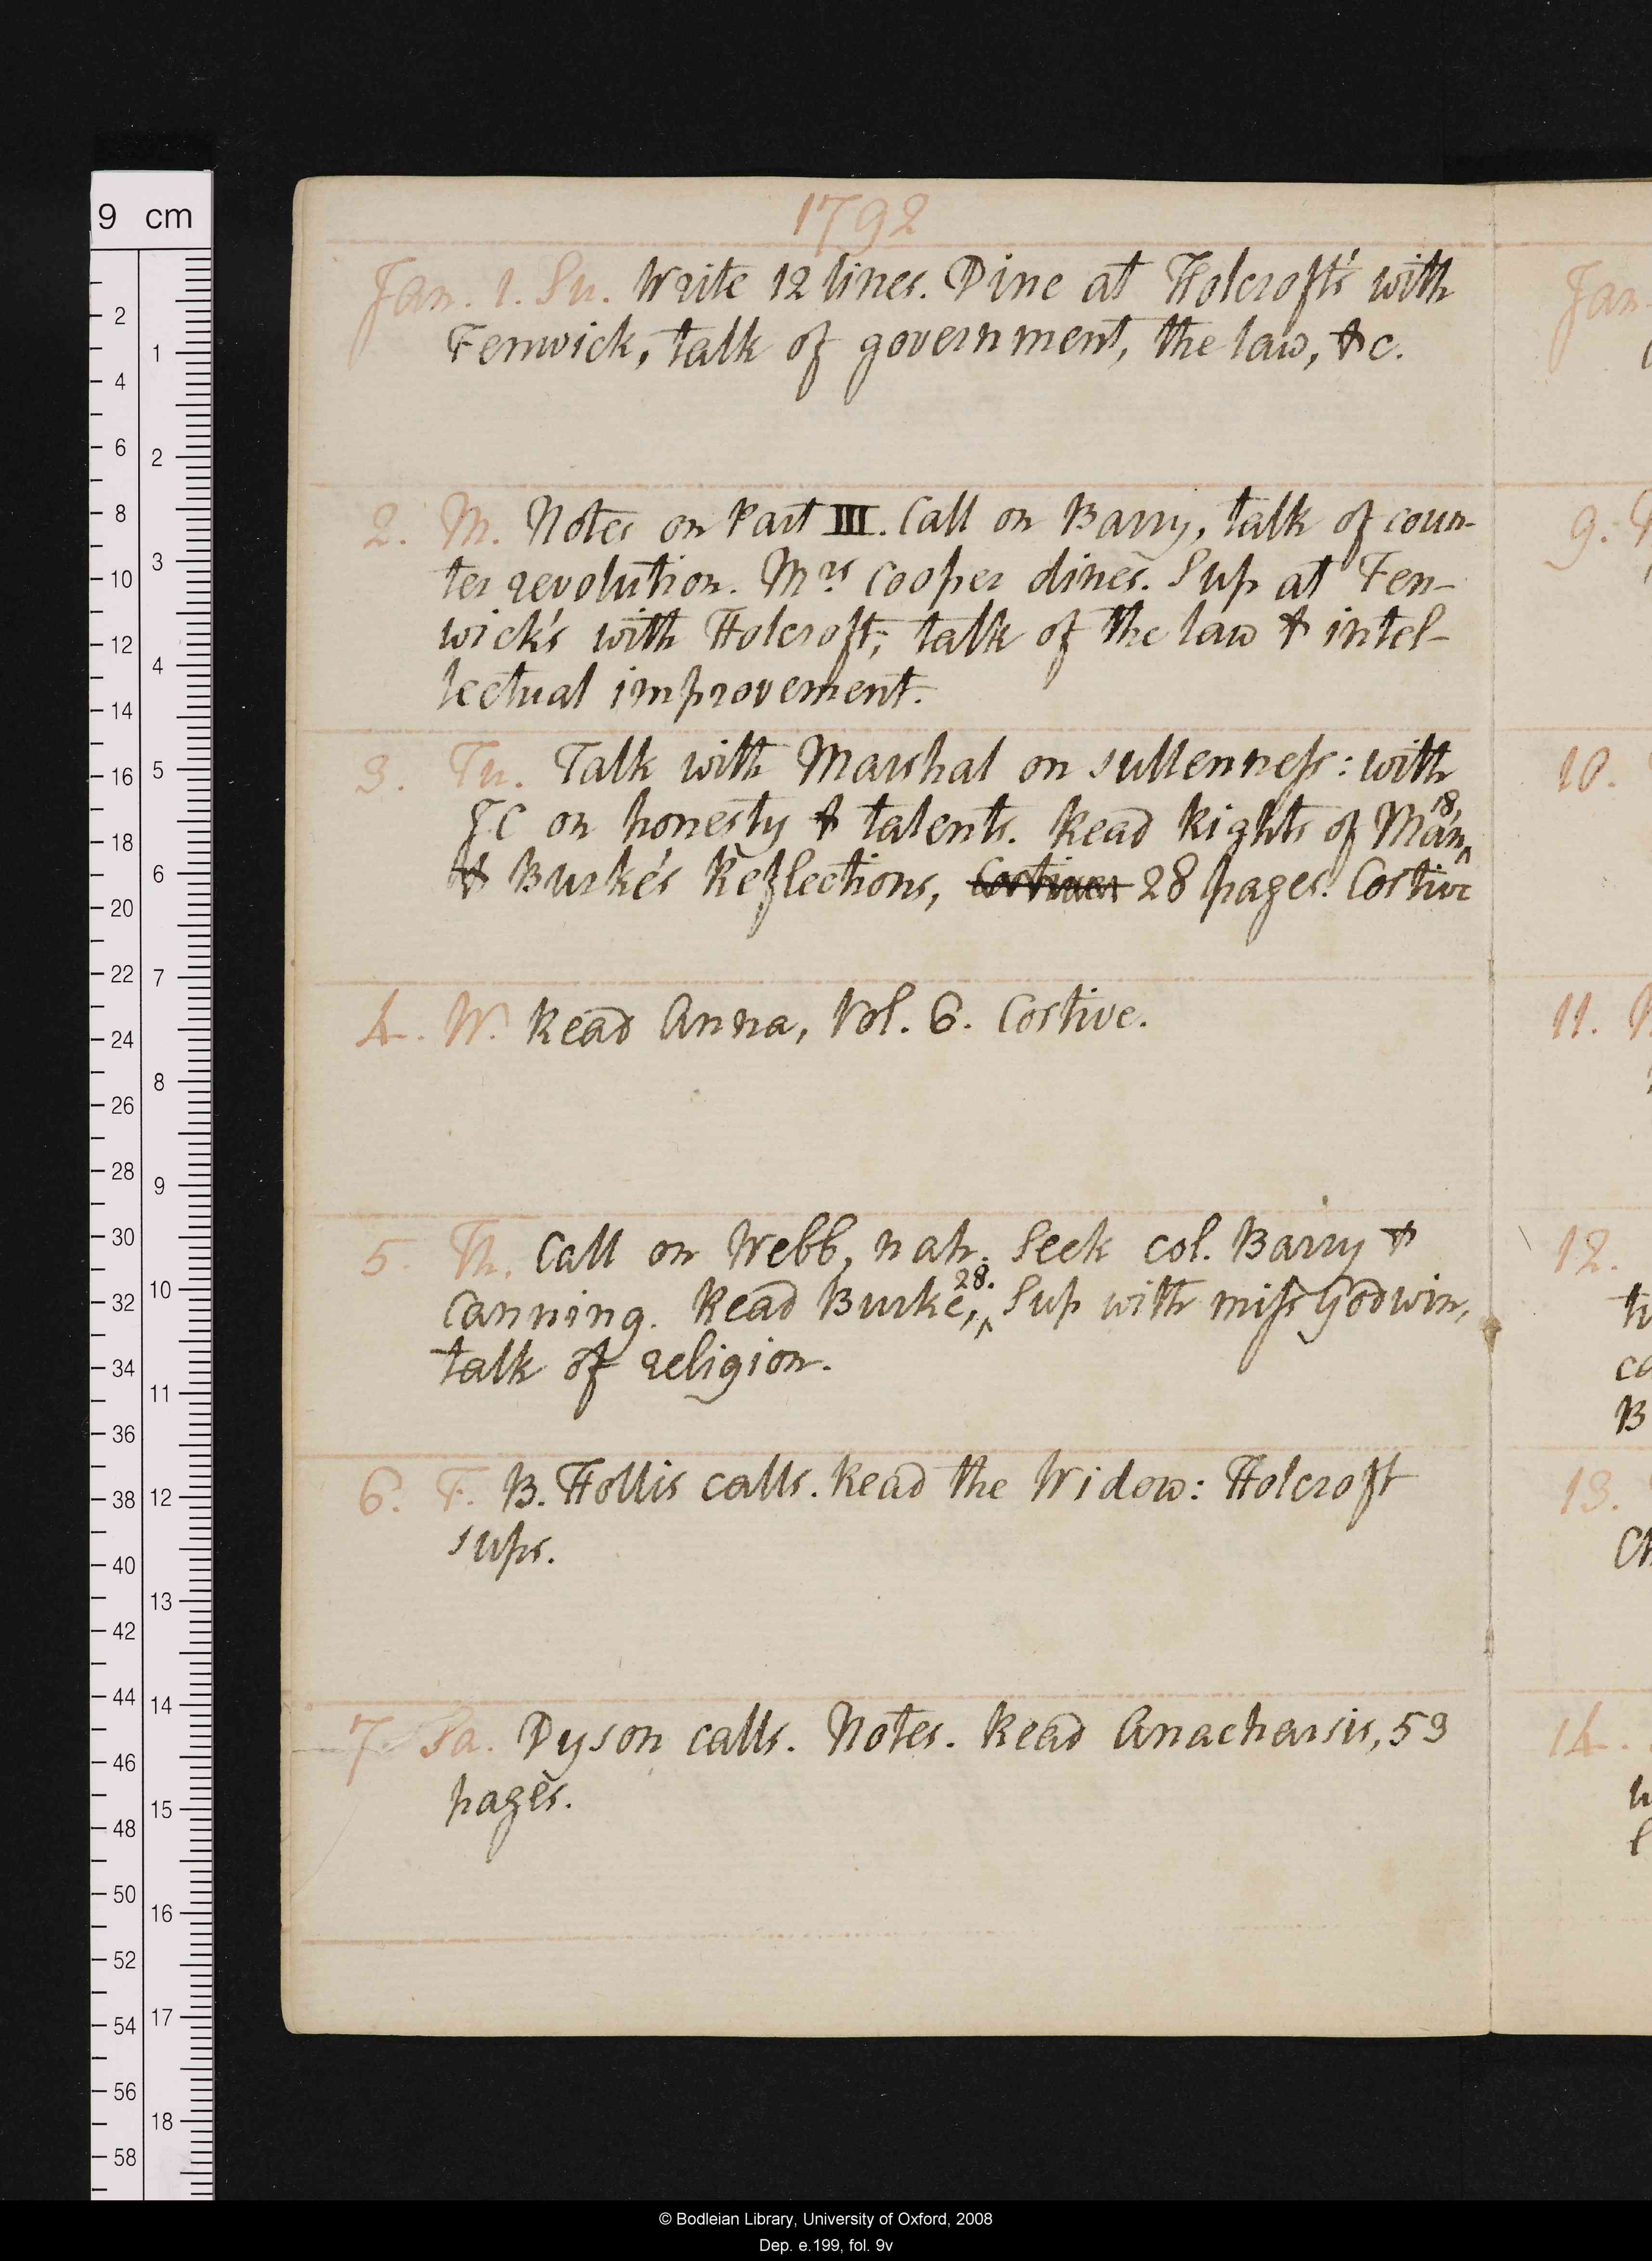 1792
Jan. 1. Su. Write 12 lines. Dine at Holcroft's with
Fenwick, talk of government, the law, &c.
2. M. Notes on Part III. Call on Barry, talk of coun-
ter revolution. Mrs Cooper dines. Sup at Fen-
wick's with Holcroft; talk of the law & intel-
lectual improvement.
3. Tu. Talk with Marshal on sullenness: with
JC on honesty & talents. Read Rights of Man, 18
& Burke's Reflections, 28 pages. Costive
4. W. Read Anna, Vol. 6. Costive.
5. Th. Call on Webb, nah. Seek col. Barry &
Canning. Read Burke, 28. Sup with miss Godwin,
talk of religion.
6. F. B. Hollis calls. Read the Widow: Holcroft
sups.
7 Sa. Dyson calls. Notes. Read Anacharsis, 53
pages.
Jan
9.
10.
11.
12.
13.
14.
9 cm
2
4
6
8
10
12
14
16
18
20
22
24
26
28
30
32
34
36
38
40
42
44
46
48
50
52
54
56
58
1
2
3
4
5
6
7
8
9
10
11
12
13
14
15
16
17
18
© Bodleian Library, University of Oxford, 2008
Dep. e.199, fol. 9v